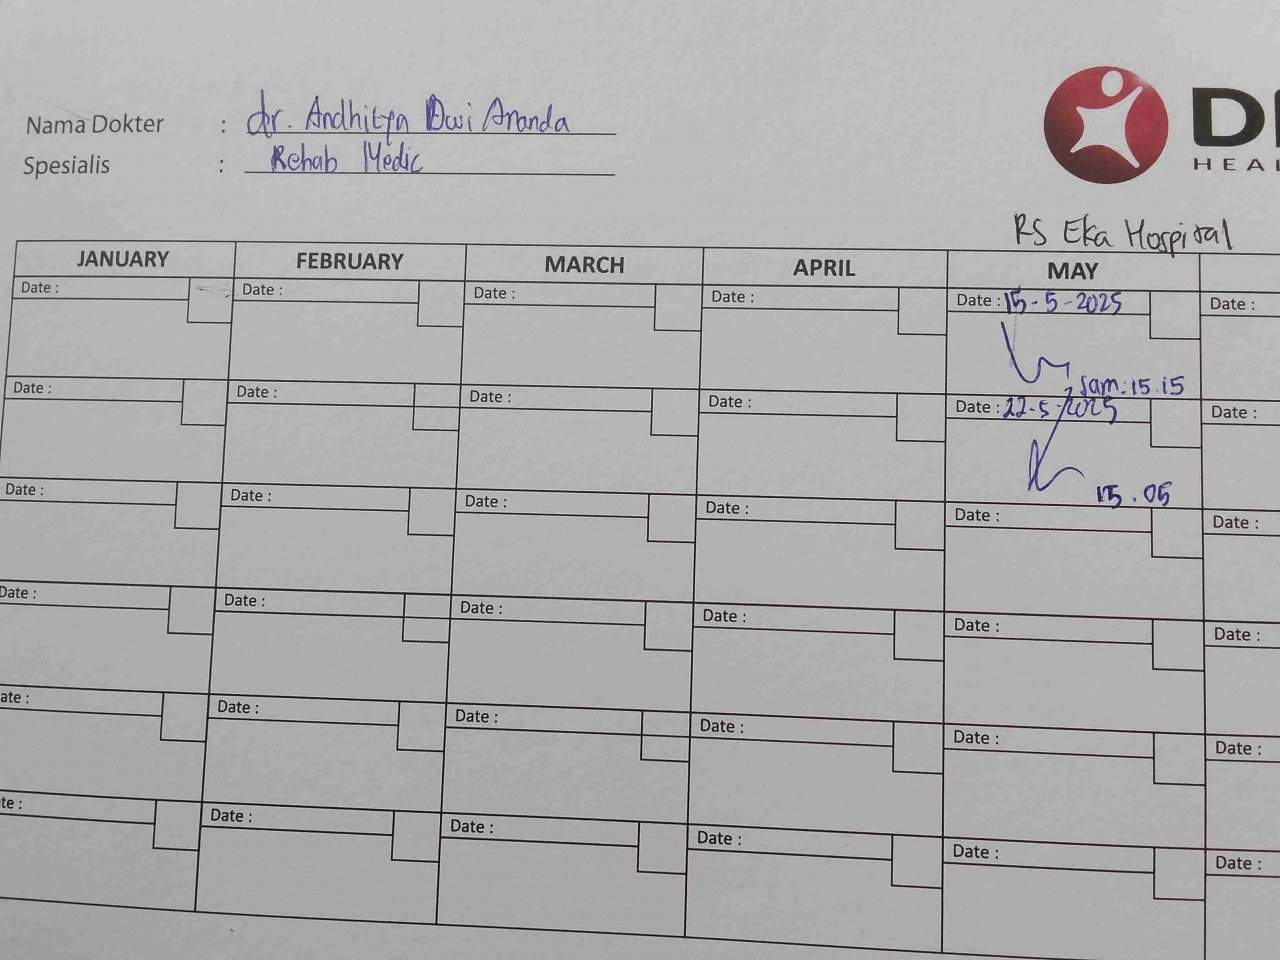 Nama Dokter : dr. Andhitya Dwi Ananda
Spesialis : Rehab Medic
HEAL
RS Eka Hospital
JANUARY FEBRUARY MARCH APRIL MAY
Date : Date : Date : Date : Date : 15-5-2025 Date :
Jam : 15.15
Date : Date : Date : Date : Date : 22-5-2025 Date :
15.05
Date : Date : Date : Date : Date : Date :
Date : Date : Date : Date : Date : Date :
ate : Date : Date : Date : Date : Date :
te : Date : Date : Date : Date : Date :